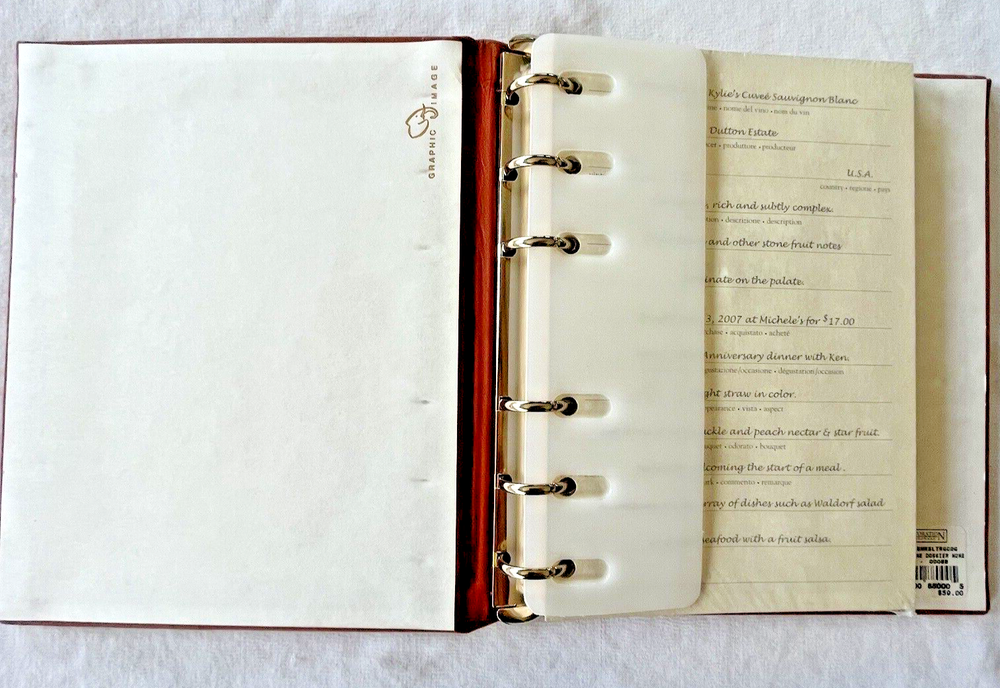 GRAPHIC IMAGE
Kylie's Cuveé Sauvignon Blanc
• nome del vino • nom du vin
Dutton Estate
• produttore • producteur
U.S.A.
country • regione • pays
rich and subtly complex.
• descrizione • description
and other stone fruit notes
on the palate.
3, 2007 at Michele's for $17.00
• acquistato • acheté
Anniversary dinner with Ken.
• dégustation/occasion
straw in color.
• vista • aspect
and peach nectar & star fruit.
• odorato • bouquet
the start of a meal.
• commento • remarque
of dishes such as Waldorf salad
with a fruit salsa.
DOSSIER WINE
00089
$59.00